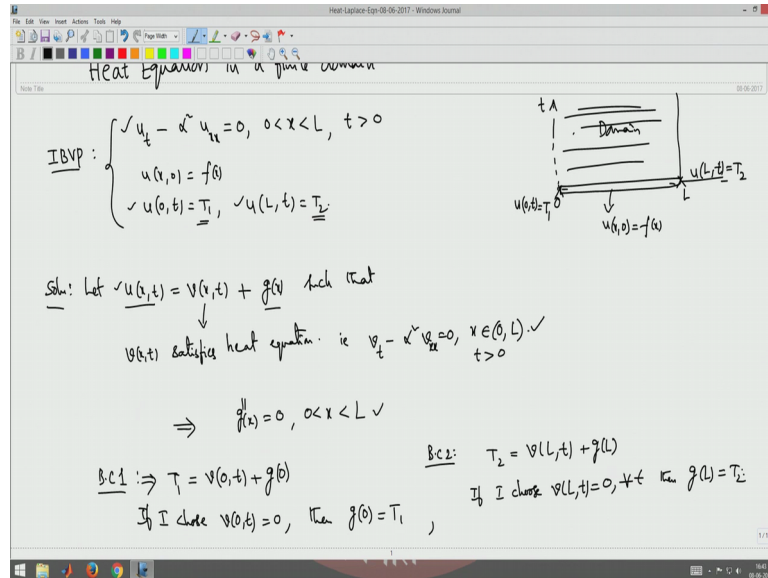 Heat-Laplace-Eqn-08-06-2017 - Windows Journal
File Edit View Insert Actions Tools Help
Page Width
B I
Heat Equation in a finite domain
Note Title
08-06-2017
IBVP : { ✓ u_t - α² u_xx = 0, 0<x<L, t>0
u(x,0) = f(x)
✓ u(0,t) = T₁, ✓ u(L,t) = T₂.
t
Domain
u(0,t)=T₁ 0
L
u(L,t)=T₂
u(x,0)=f(x)
Soln: Let ✓ u(x,t) = v(x,t) + g(x) such that
v(x,t) satisfies heat equation. ie v_t - α² v_xx = 0, x ∈ (0, L). ✓
t>0
⇒ g''(x) = 0, 0<x<L ✓
B.C 1 : ⇒ T₁ = v(0,t) + g(0)
If I chose v(0,t) = 0, then g(0) = T₁ ,
B.C 2: T₂ = v(L,t) + g(L)
If I choose v(L,t)=0, ∀t then g(L) = T₂.
1
1/1
16:43
08-06-20